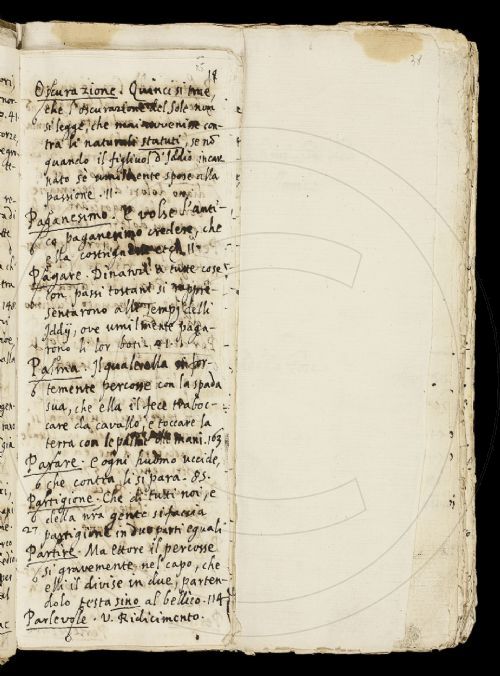 18
38
Oscurazione. Quinci si trae,
che l'oscurazione del Sole non
si legge, che mai avvenisse con-
tra li naturali statuti, se nō
quando il figliuol d'Iddio incar
nato sè umilmente spose alla
passione. 11.
Paganesimo. E volse l'anti-
co paganesimo credere, che
ella
Pagare. Dinanzi a tutte cose
con passi tostani si rappre-
sentarono alli Tempj delli
Iddij, ove umilmente paga-
rono li lor boti. 41.
Palma. Il quale ella sì for-
temente percosse con la spada
sua, che ella il fece traboc-
care da cavallo, e toccare la
terra con le palme delle mani. 163
Parare. E ogni huomo uccide,
che contra li si para. 85.
Partigione. Che di tutti noi, e
della nr̄a gente si faccia
27 partigione in due parti eguali
Partire. Ma Ettore il percosse
si gravemente nel capo, che
elli il divise in due, parten-
dolo testa sino al bellico. 114
Parlevole. V. Ridicimento.